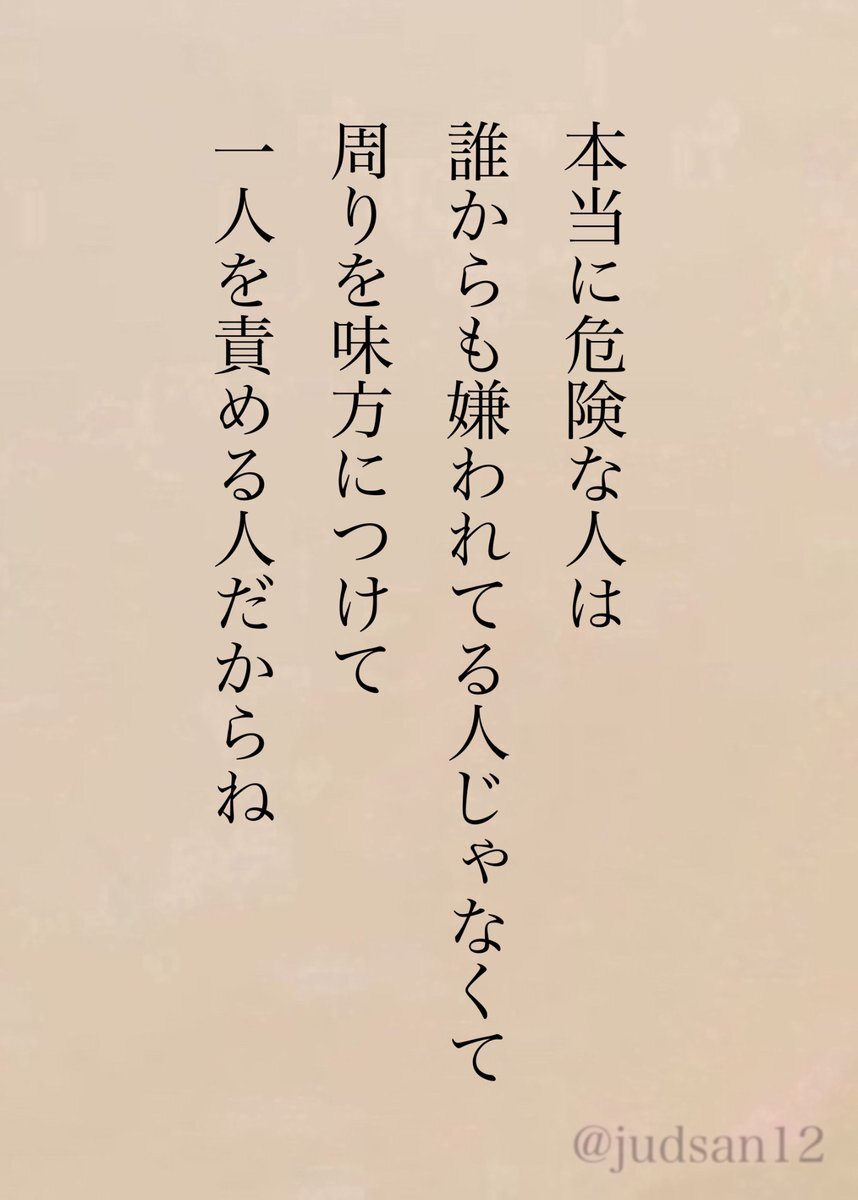 本当に危険な人は
誰からも嫌われてる人じゃなくて
周りを味方につけて
一人を責める人だからね
@judsan12